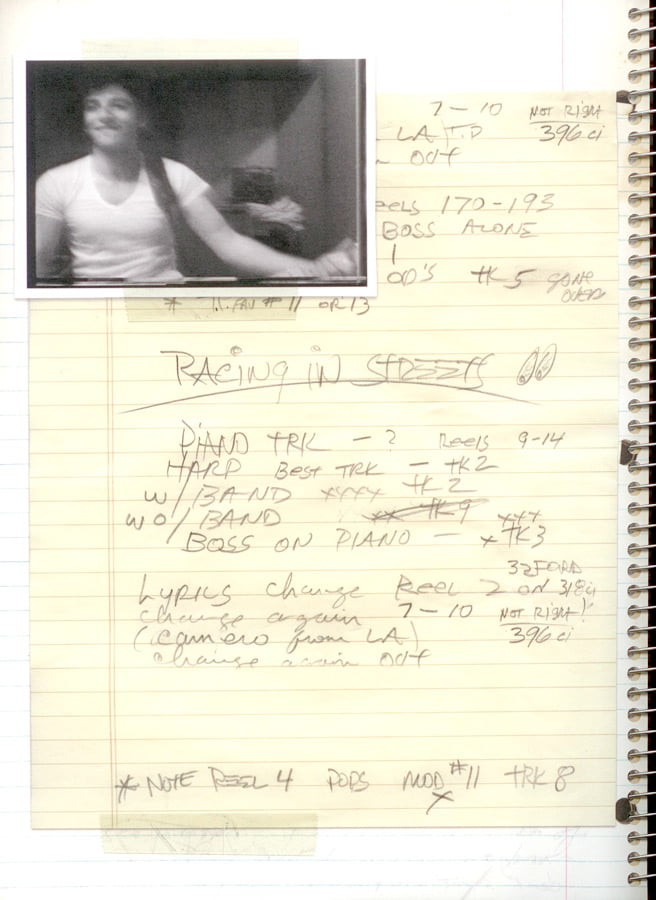 7-10 NOT RIGHT
LA T.D 396 ci
OUT
Reels 170-193
BOSS ALONE
1
OD'S TK 5 gone over
* FAV # 11 OR 13
RACING IN STREETS
PIANO TRK - ? Reels 9-14
HARP Best TRK - TK2
w/ BAND xxxx TK 2
wo/ BAND xx TK9 xxx
BOSS ON PIANO - x TK3
32 FORD
Lyrics change Reel 2 ON 318ci
change again 7-10 NOT RIGHT!
(camero from LA) 396 ci
change again OUT
* NOTE REEL 4 PODS MOD #11 TRK 8
x